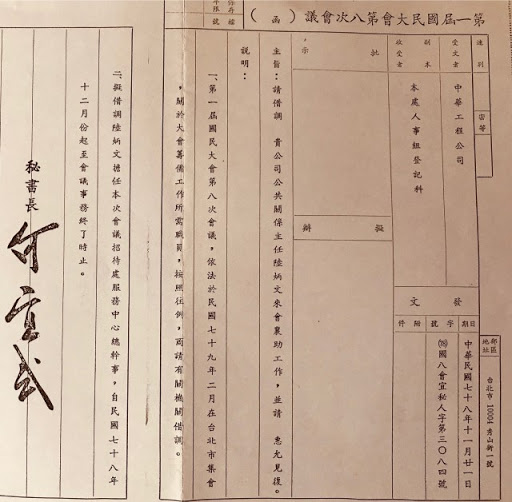 第一屆國民大會第八次會議（函）
保存年限
檔號
速別
密等
受文者
中華工程公司
副本收受者
本處人事組登記科
批示
擬辦
發文
日期
中華民國七十八年十一月廿一日
字號
(78)國八會宜秘人字第三〇八四號
附件
郵區地址
台北市10004秀山街1號
主旨：請借調　貴公司公共關係主任陸炳文來會襄助工作，並請　惠允見復。
說明：
一、第一屆國民大會第八次會議，依法於民國七十九年二月在台北市集會
，關於大會籌備工作所需職員，按照往例，商請有關機關借調。
二、擬借調陸炳文擔任本次會議招待處服務中心總幹事，自民國七十八年
十二月份起至會議事務終了時止。
秘書長 何宜武